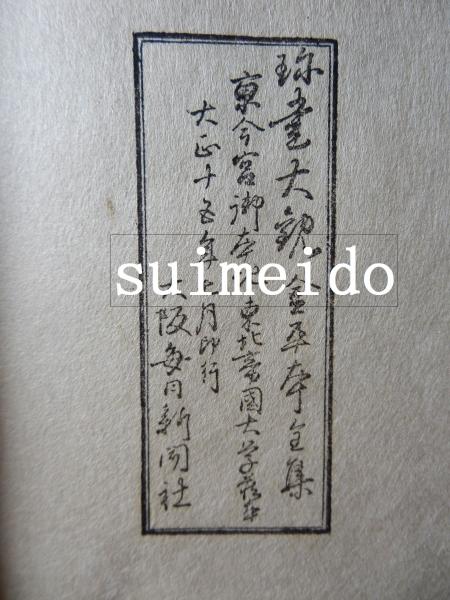 珍書大観金平本全集
宮御本 東北帝國大学蔵本
大正十五年 月印行
大阪毎日新聞社
suimeido